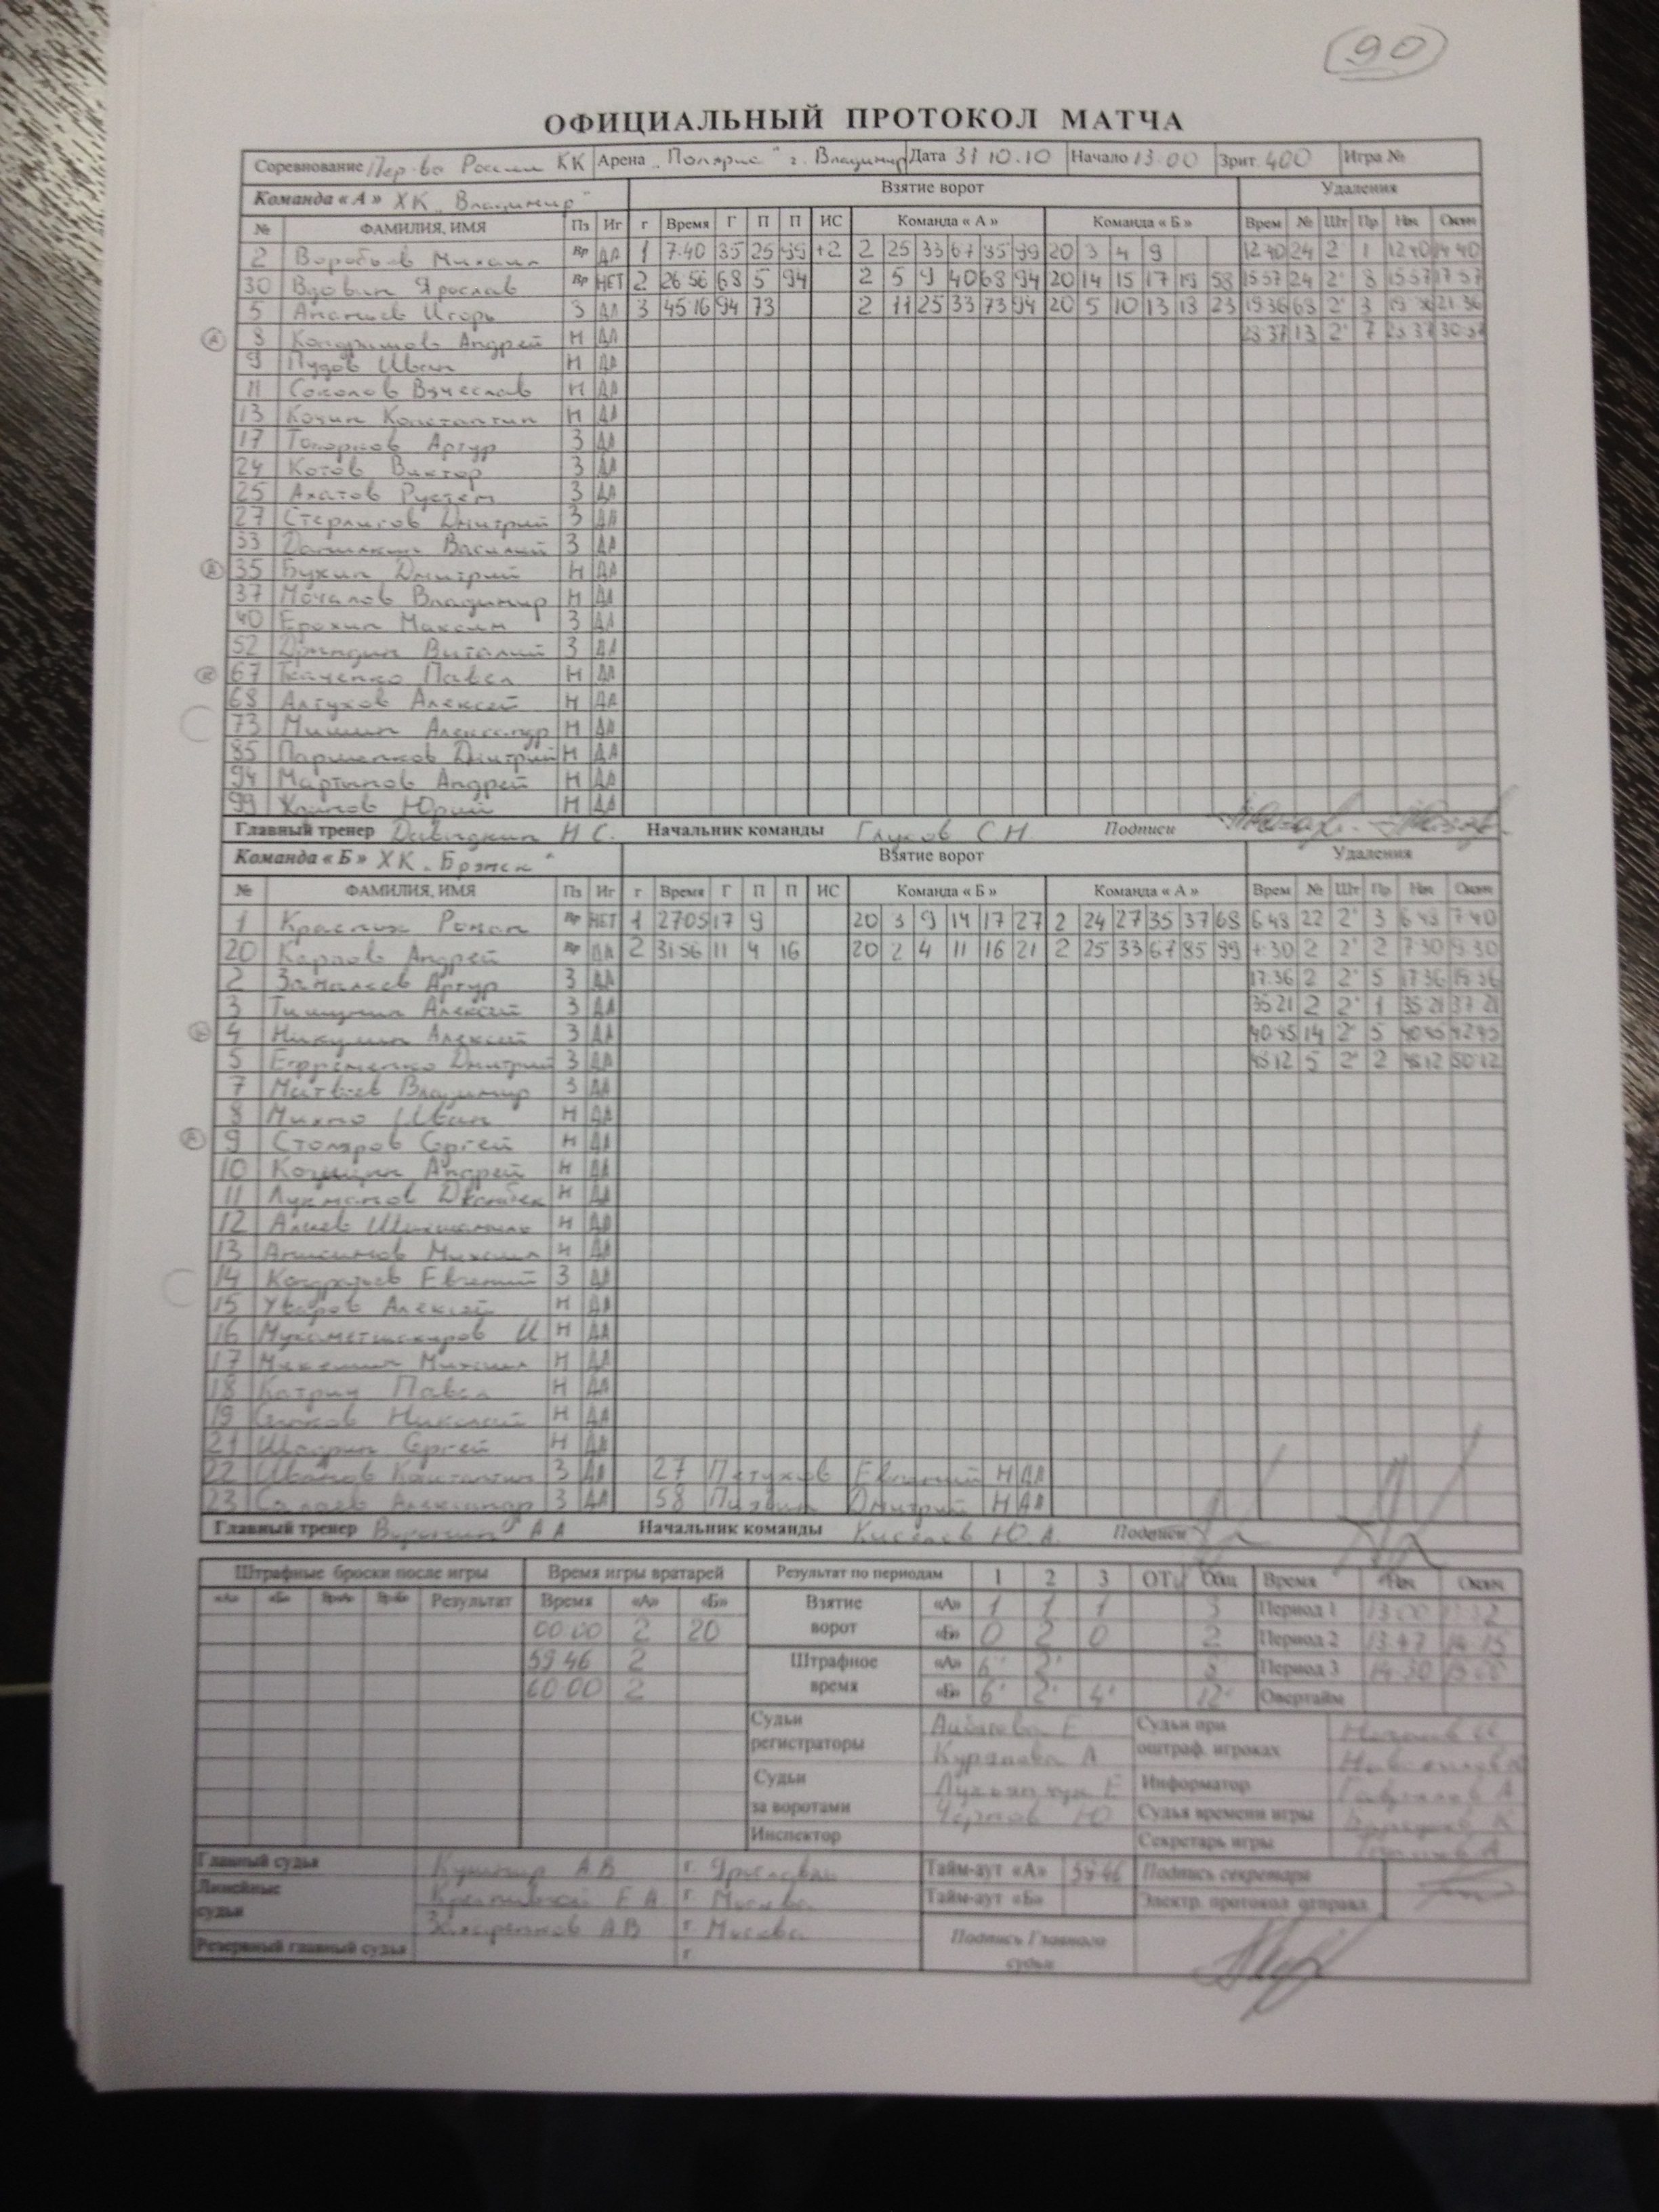 90
ОФИЦИАЛЬНЫЙ ПРОТОКОЛ МАТЧА
Соревнование Пер-во России КК Арена "Полярис" г. Владимир Дата 31 10.10 Начало 13 00 Зрит. 400 Игра №
Команда « А » ХК "Владимир" Взятие ворот Удаления
№ ФАМИЛИЯ, ИМЯ Пз Иг г Время Г П П ИС Команда « А » Команда « Б » Врем № Шт Пр Нач Окон
2 Воробьев Михаил Вр ДА 1 7.40 35 25 99 +2 2 25 33 67 35 99 20 3 4 9 12 40 24 2' 1 12 40 14 40
30 Вдовин Ярослав Вр НЕТ 2 26 56 68 5 94 2 5 9 40 68 94 20 14 15 17 19 58 15 57 24 2' 3 15 57 17 57
5 Ананьев Игорь З ДА 3 45 16 94 73 2 11 25 33 73 94 20 5 10 13 18 23 19 36 68 2' 3 19 36 21 36
А 8 Андрей Н ДА 13 2' 7
9 Пудов Иван Н ДА
11 Соколов Вячеслав Н ДА
13 Кочин Константин Н ДА
17 Топорков Артур З ДА
24 Котов Виктор З ДА
25 Ахатов Рустем З ДА
27 Стерлигов Дмитрий З ДА
33 Данилкин Василий З ДА
А 35 Букин Дмитрий Н ДА
37 Мочалов Владимир Н ДА
40 Ерохин Максим З ДА
52 Виталий З ДА
К 67 Ткаченко Павел Н ДА
68 Алтухов Алексей Н ДА
73 Мишин Александр Н ДА
85 Парменков Дмитрий Н ДА
94 Мартынов Андрей Н ДА
99 Юрий Н ДА
Главный тренер Давыдкин Н С. Начальник команды Глухов С Н. Подписи
Команда « Б » ХК "Брянск" Взятие ворот Удаления
№ ФАМИЛИЯ, ИМЯ Пз Иг г Время Г П П ИС Команда « Б » Команда « А » Врем № Шт Пр Нач Окон
1 Роман Вр НЕТ 1 27 05 17 9 20 3 9 14 17 27 2 24 27 35 37 68 6 48 22 2' 3 6 48 7 40
20 Карпов Андрей Вр ДА 2 31 56 11 4 16 20 2 4 11 16 21 2 25 33 67 85 99 7.30 2 2' 2 7 30 9 30
2 Замалеев Артур З ДА 17.36 2 2' 5 17 36 19 36
3 Тимунин Алексей З ДА 35 21 2 2' 1 35 21 37 21
4 Никулин Алексей З ДА 40 45 14 2' 5 40 45 42 45
5 Ефременко Дмитрий З ДА 48 12 5 2' 2 48 12 50 12
7 Матвеев Владимир З ДА
8 Михно Иван Н ДА
А 9 Столяров Сергей Н ДА
10 Андрей Н ДА
11 Лукманов Н ДА
12 Алиев Н ДА
13 Анисимов Михаил Н ДА
14 Кондратьев Евгений З ДА
15 Уваров Алексей Н ДА
16 И Н ДА
17 Михаил Н ДА
18 Катрич Павел Н ДА
19 Николай Н ДА
21 Шафрин Сергей Н ДА
22 Иванов Константин З ДА 27 Петухов Евгений Н ДА
23 Александр З ДА 58 Дмитрий Н ДА
Главный тренер А А Начальник команды Киселев Ю.А. Подписи
Штрафные броски после игры Время игры вратарей Результат по периодам 1 2 3 ОТ Общ Время Нач Окон
«А» «Б» ВрА ВрБ Результат Время «А» «Б» Взятие ворот «А» 1 1 1 3 Период 1 13 00
00 00 2 20 «Б» 0 2 0 2 Период 2 13.47 14 15
59 46 2 Штрафное время «А» 6' 2' 8' Период 3 14 30 15 00
60 00 2 «Б» 6' 2' 4' 12' Овертайм
Судьи регистраторы Судьи при оштраф. игроках
Курапова А
Судьи за воротами Е Информатор
Чернов Ю Судья времени игры
Инспектор Секретарь игры
Главный судья Кушнир А.В г. Ярославль Тайм-аут «А» 59 46 Подпись секретаря
Линейные судьи Е А. г. Москва Тайм-аут «Б» Электр. протокол отправл
А.В г. Москва Подпись Главного судьи
Резервный главный судья г.